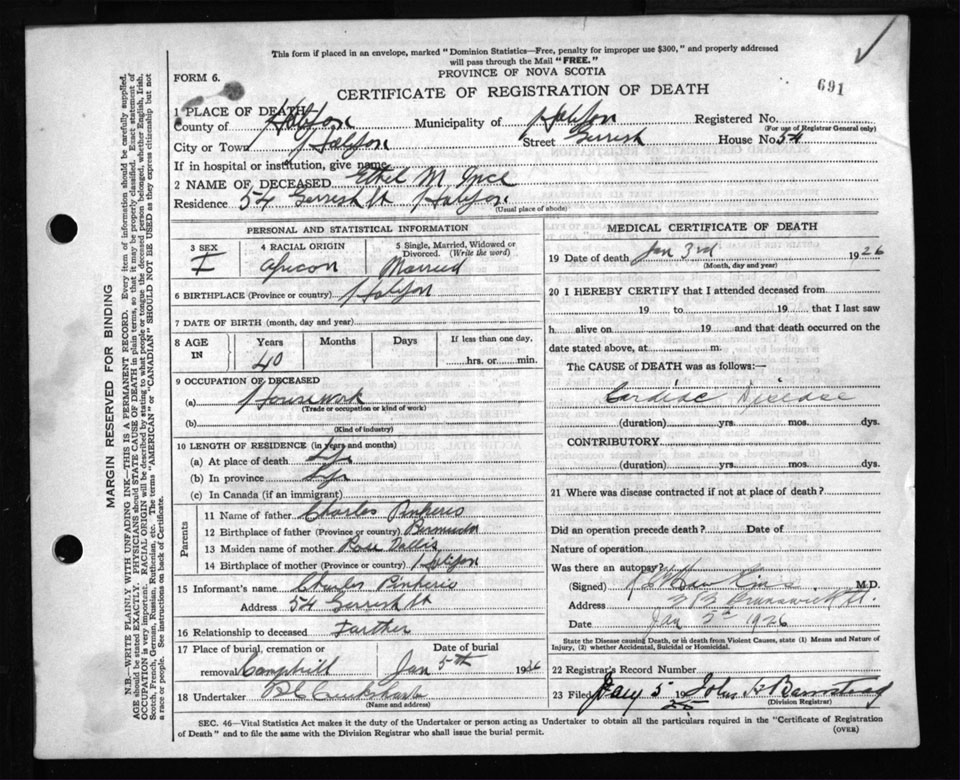 This form if placed in an envelope, marked "Dominion Statistics—Free, penalty for improper use $300," and properly addressed
will pass through the Mail "FREE."
FORM 6.
PROVINCE OF NOVA SCOTIA
CERTIFICATE OF REGISTRATION OF DEATH
691
1 PLACE OF DEATH
County of Halifax Municipality of Halifax Registered No.
(For use of Registrar General only)
City or Town Halifax Street Gerrish House No. 54
If in hospital or institution, give name
2 NAME OF DECEASED Ethel M
Residence 54 Gerrish St Halifax
(Usual place of abode)
PERSONAL AND STATISTICAL INFORMATION
3 SEX F
4 RACIAL ORIGIN African
5 Single, Married, Widowed or Divorced. (Write the word) Married
6 BIRTHPLACE (Province or country) Halifax
7 DATE OF BIRTH (month, day and year)
8 AGE IN Years 40 Months Days If less than one day. hrs. or min.
9 OCCUPATION OF DECEASED
(a) Housework
(Trade or occupation or kind of work)
(b)
(Kind of industry)
10 LENGTH OF RESIDENCE (in years and months)
(a) At place of death Life
(b) In province Life
(c) In Canada (if an immigrant)
Parents
11 Name of father Charles
12 Birthplace of father (Province or country) Bermuda
13 Maiden name of mother Rose
14 Birthplace of mother (Province or country) Halifax
15 Informant's name Charles
Address 54 Gerrish St
16 Relationship to deceased Farther
17 Place of burial, cremation or removal Camphill
Date of burial Jan 5th 1926
18 Undertaker
(Name and address)
MEDICAL CERTIFICATE OF DEATH
19 Date of death Jan 3rd 1926
(Month, day and year)
20 I HEREBY CERTIFY that I attended deceased from
19 to 19 that I last saw
h alive on 19 and that death occurred on the
date stated above, at m.
The CAUSE of DEATH was as follows:—
Cardiac Disease
(duration) yrs. mos. dys.
CONTRIBUTORY
(duration) yrs. mos. dys.
21 Where was disease contracted if not at place of death?
Did an operation precede death? Date of
Nature of operation
Was there an autopsy?
(Signed) M.D.
Address Brunswick St.
Date Jan 5th 1926
State the Disease causing Death, or in death from Violent Causes, state (1) Means and Nature of Injury, (2) whether Accidental, Suicidal or Homicidal.
22 Registrar's Record Number
23 Filed Jany 5 19 John
(Division Registrar)
SEC. 46—Vital Statistics Act makes it the duty of the Undertaker or person acting as Undertaker to obtain all the particulars required in the "Certificate of Registration
of Death" and to file the same with the Division Registrar who shall issue the burial permit.
(OVER)
MARGIN RESERVED FOR BINDING
N.B.—WRITE PLAINLY WITH UNFADING INK—THIS IS A PERMANENT RECORD. Every item of information should be carefully supplied.
AGE should be stated EXACTLY. PHYSICIANS should STATE CAUSE OF DEATH in plain terms, so that it may be properly classified. Exact statement of
OCCUPATION is very important. RACIAL ORIGIN will be described by stating to what people or tongue the deceased person belonged, whether English, Irish,
Scotch, French, German, Russian, Ruthenian, etc. The terms "AMERICAN" or "CANADIAN" SHOULD NOT BE USED as they express citizenship but not
a race or people. See instructions on back of Certificate.